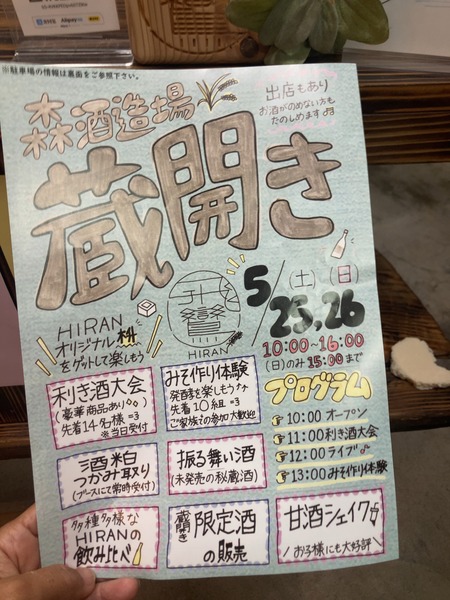 Alipay
※駐車場の情報は裏面をご参照下さい。
森酒造場
出店もあり
お酒がのめない方も
たのしめます♬
蔵開き
飛鸞
HIRAN
5/25,26
(土)(日)
HIRAN
オリジナル枡
をゲットして楽しもう
10:00~16:00
(日)のみ15:00まで
プログラム
10:00 オープン
11:00 利き酒大会
12:00 ライブ♪
13:00 みそ作り体験
利き酒大会
(豪華商品あり)
先着14名様
※当日受付
みそ作り体験
発酵を楽しもう♪
先着10組
ご家族での参加大歓迎
酒粕
つかみ取り
(ブースにて常時受付)
振る舞い酒
(未発売の秘蔵酒)
多種多様な
HIRANの
飲み比べ
蔵開き
限定酒
の販売
甘酒シェイク
お子様にも大好評